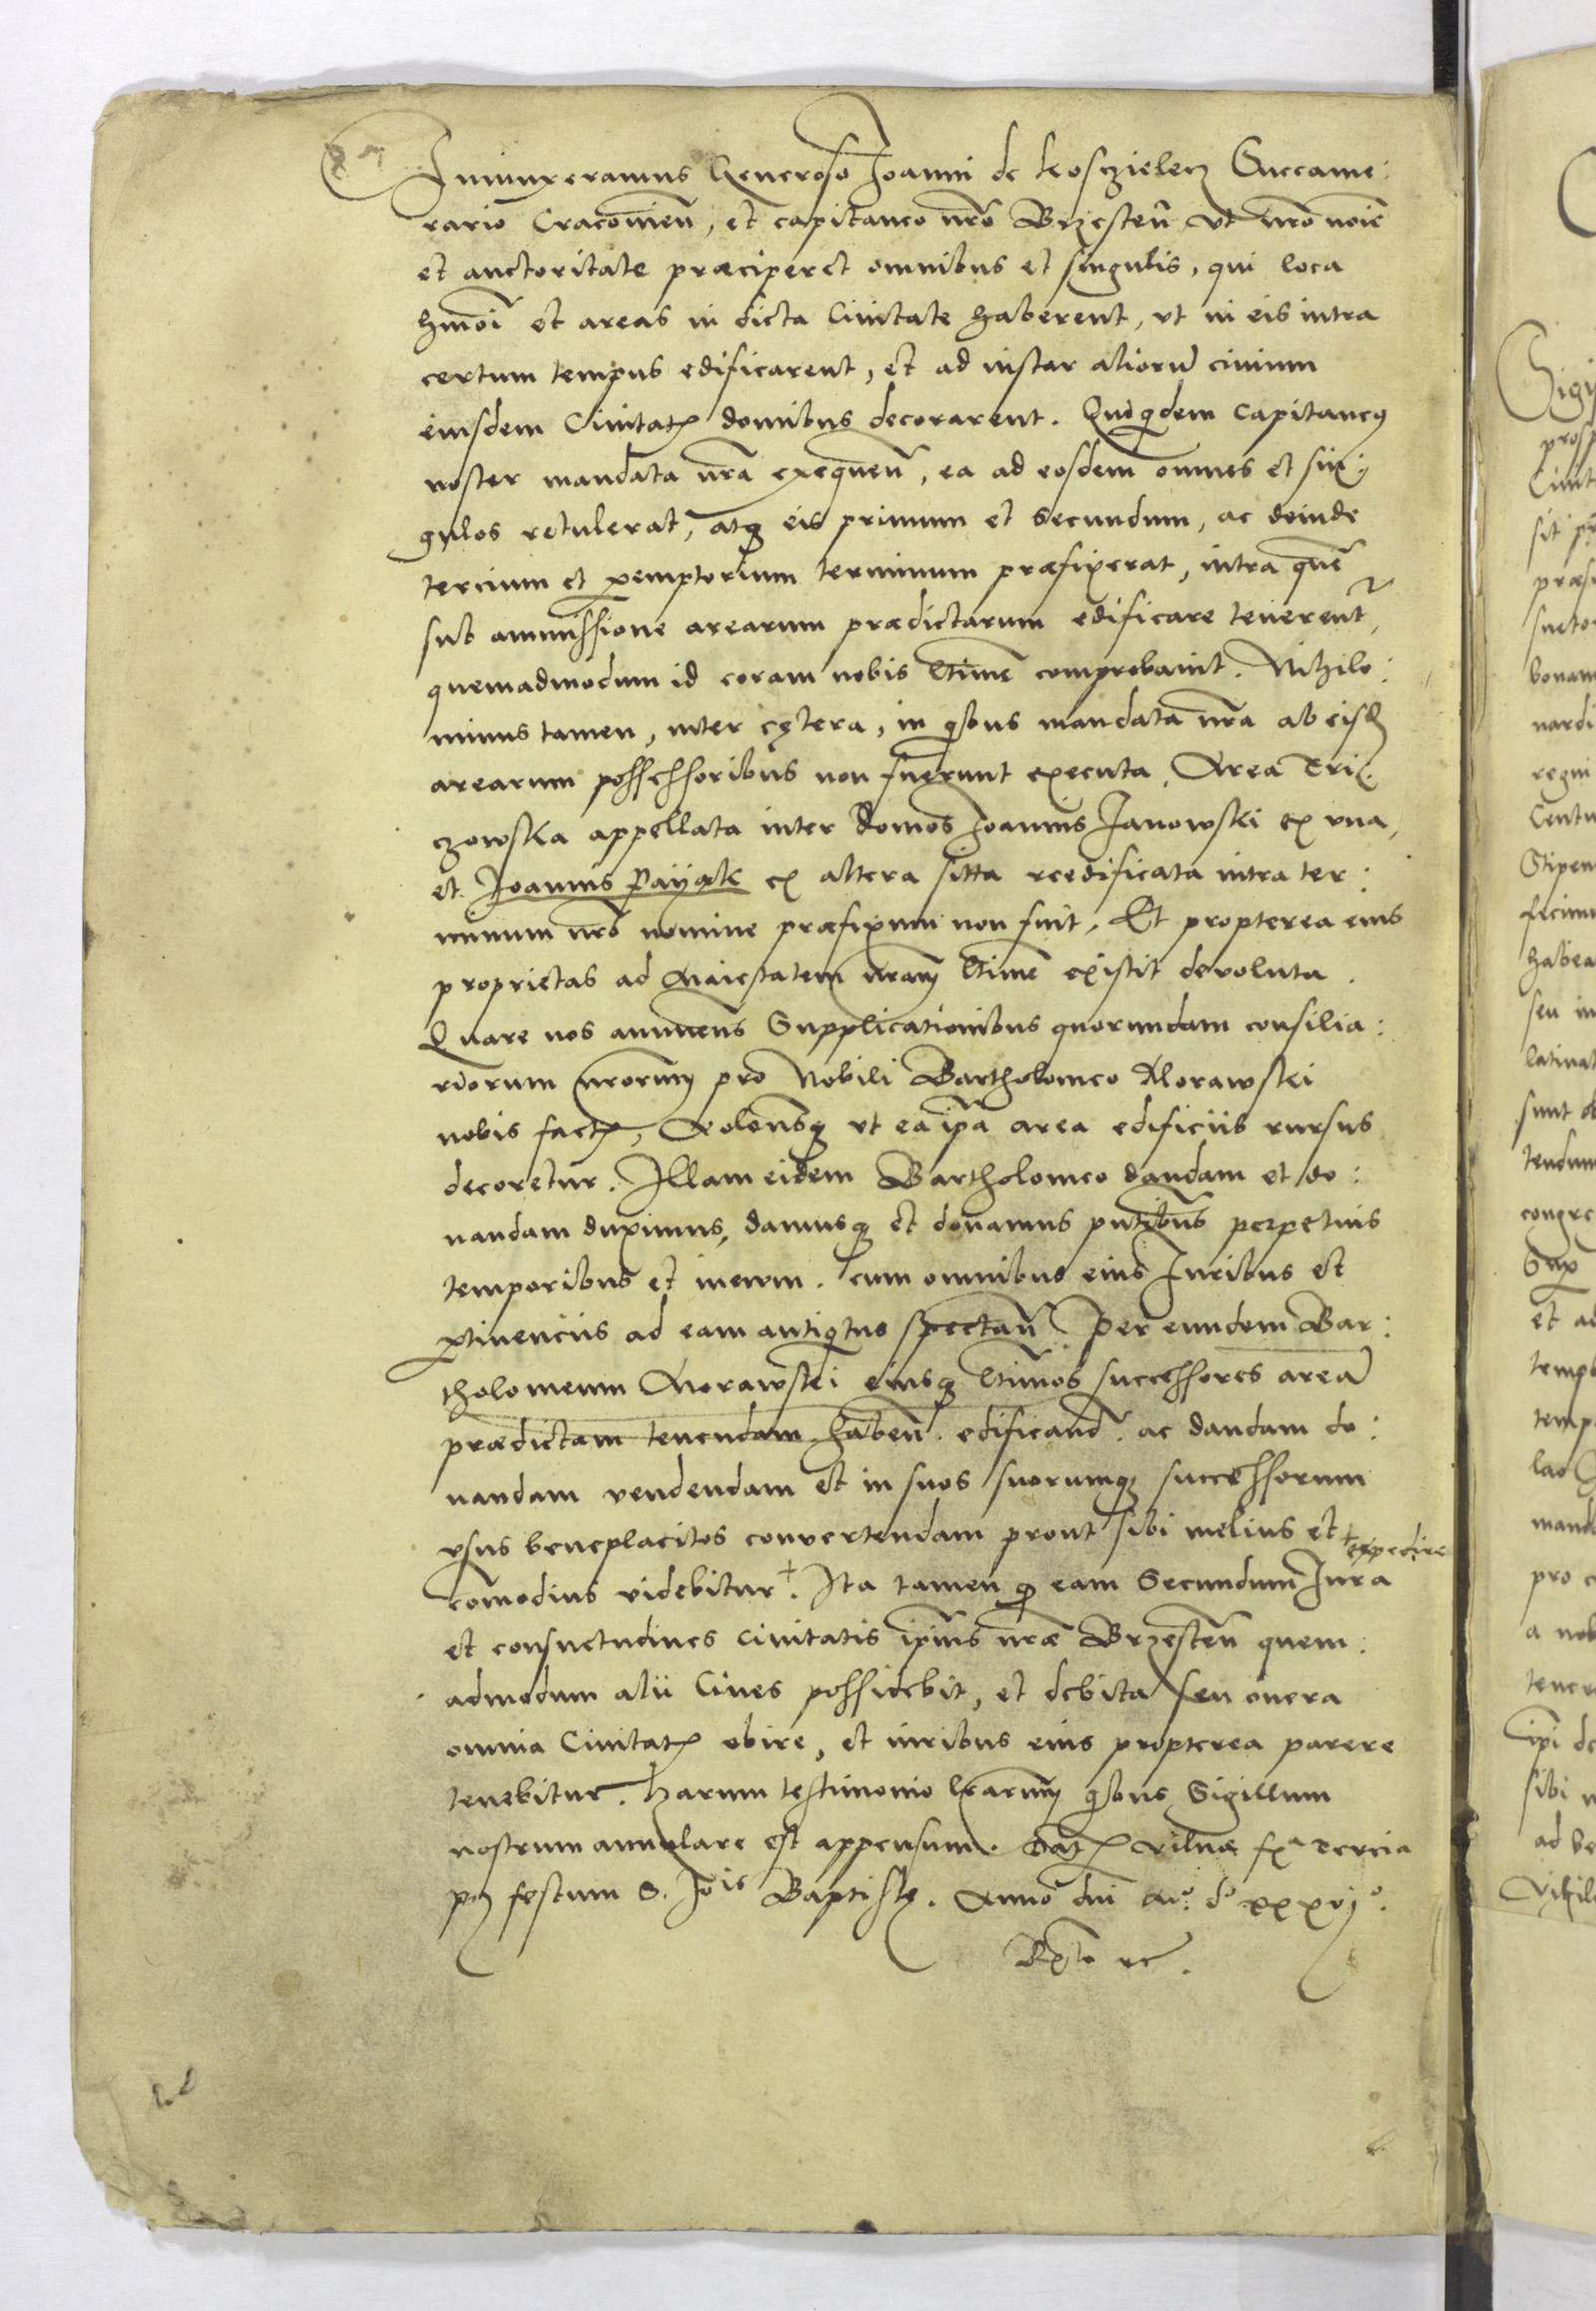 Iniunxeramus Generoso Joanni de Kosczielecz Succame:
rario Cracouien̄, et capitaneo nr̄o Brzesten̄ vt nr̄o noīe
et auctoritate præciperet omnibus et singulis, qui loca
hmōi et areas in dicta Ciuitate haberent, vt in eis intra
certum tempus edificarent, et ad instar aliorū ciuium
eiusdem Ciuitatꝭ domibus decorarent. Quiqͥdem Capitaneꝰ
noster mandata nr̄a exequen̄, ea ad eosdem omnes et sin:
gulos retulerat, atqꝫ eis primum et secundum, ac deinde
tercium et ꝑemptorium terminum præfixerat, intra quē
sub ammissione arearum prædictarum edificare tenerent̄,
quemadmodum id coram nobis ltīme comprobauit. Nihilo:
minus tamen, inter cętera, in qͥbus mandata nr̄a ab eisd
arearum possessoribus non fuerunt executa, Area Tri:
czowska appellata inter domos Joannis Janowski ex vna,
et Joannis Payąk ex altera sitta reedificata intra ter:
minum nr̄o nomine præfixum non fuit, Et propterea eius
proprietas ad Maiestatem nr̄am ltīme existit deuoluta.
Quare nos annuen̄s Supplicationibus quorundam consilia:
riorum nr̄orum pro Nobili Bartholomeo Morawski
nobis factꝭ, Volen̄sqꝫ vt ea ip̄a area edificiis rursus
decoretur. Illam eidem Bartholomeo dandam et do:
nandam duximus, damusqꝫ et donamus pn̄tibus perpetuis
temporibus et in ewm. cum omnibus eius Juribus et
ꝑtinenciis ad eam antiqͥtus spectan̄. Per eundem Bar:
tholomeum Morawski eiusqꝫ ltīmos successores areā
prædictam tenendam haben̄. edificand̄. ac dandam do:
nandam vendendam et in suos suorumqꝫ successorum
vsus beneplacitos conuertendam prout sibi melius et + expedire
comodius videbitur +. Ita tamen ꝙ eam Secundum Jura
et consuetudines ciuitatis ip̄ius nr̄æ Brzesten̄ quem:
admodum alii Ciues possidebit, et debita seu onera
omnia Ciuitatꝭ obire, et iuribus eius propterea parere
tenebitur. Harum testimonio lr̄arum qͥbus Sigillum
nostrum annulare est appensum. Datꝭ Vilnæ fꝭa tercia
pꝰ festum S. Jois Baptistę. Anno dni Mo. do xxxvjo.
Rxto etc.